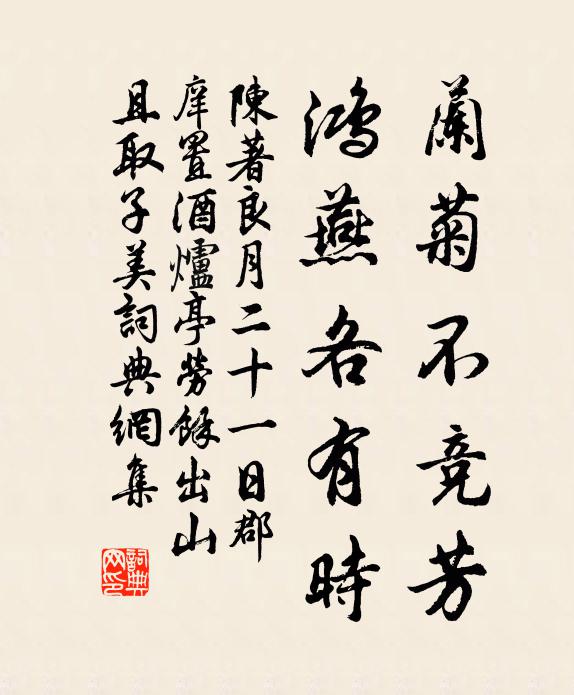 蘭菊不竞芳
鴻燕各有時
陳著良月二十一日郡
庠置酒爐亭勞餘出山
且取子美詞典網集
詞典网印